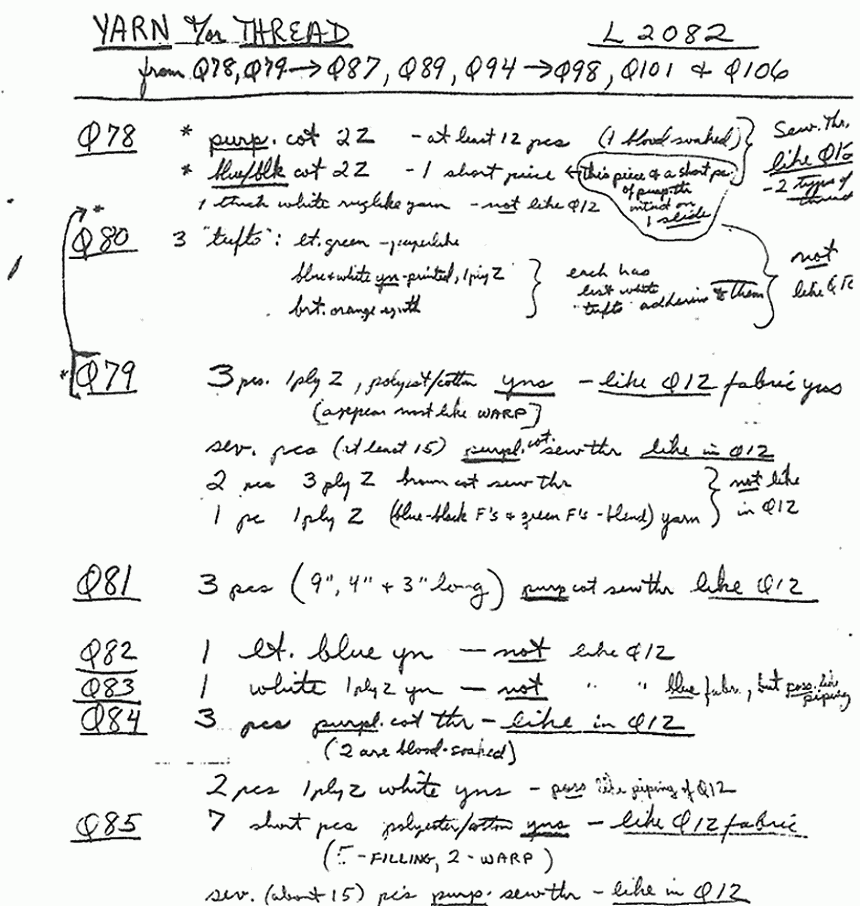 YARN &/or THREAD L2082
from Q78, Q79 → Q87, Q89, Q94 → Q98, Q101 & Q106
Q78 * purp. cot 2Z - at least 12 pcs (1 blood soaked) Sew. Thr.
* blue/blk cot 2Z - 1 short piece ← this piece & a short pc. like
of purp thr - 2 types of
1 thick white ruglike yarn - not like Q12 mtd on thread
1 slide
Q80 3 "tufts": lt. green - paperlike not
blue & white yn - printed, 1ply Z each has like
"tufts" adhering to them
brt. orange synth
* Q79 3 pcs. 1ply Z, polyest/cotton yns - like Q12 fabric yns
(appear most like WARP)
sev. pcs (at least 15) purpl. cot sew thr like in Q12
2 pcs 3 ply Z brown cot sew thr not like
1 pc 1ply Z (blue-black F's & green F's - blend) yarn in Q12
Q81 3 pcs (9", 4" + 3" long) purp cot sew thr like Q12
Q82 1 lt. blue yn - not like Q12
Q83 1 white 1ply Z yn - not " " blue fabr., but poss. like piping
Q84 3 pcs purpl. cot thr - like in Q12
(2 are blood-soaked)
2 pcs 1ply Z white yns - poss like piping of Q12
Q85 7 short pcs polyester/cotton yns - like Q12 fabric
(5 - FILLING, 2 - WARP)
sev. (about 15) pcs purp. sew thr - like in Q12